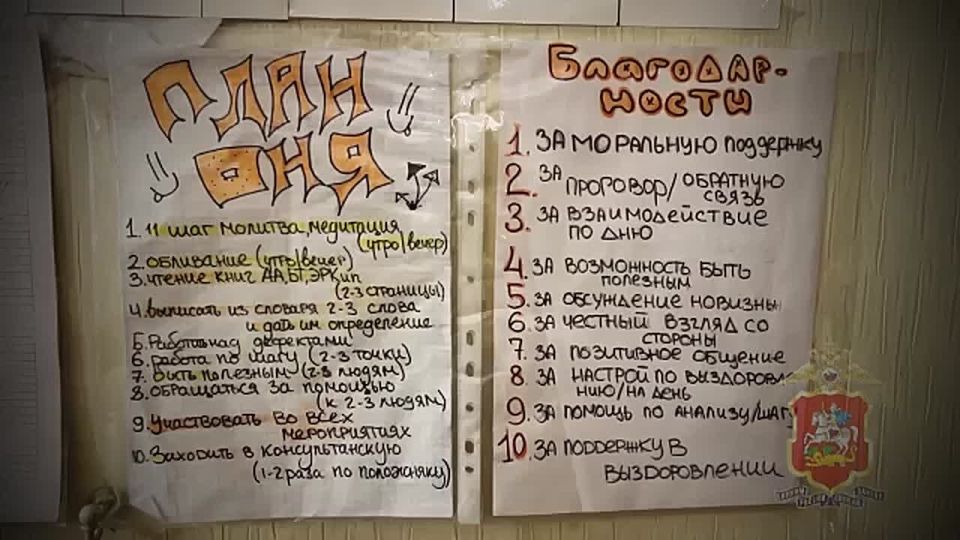 ПЛАН
ДНЯ
1. 11 шаг молитва, медитация
(утро/вечер)
2. обливание (утро/вечер)
3. чтение книг АА, БТ, ЭРКип
(2-3 страницы)
4. выписать из словаря 2-3 слова
и дать им определение
5. Работа над дефектами
6. работа по шагу (2-3 точки)
7. быть полезным (2-3 людям)
8. обращаться за помощью
(к 2-3 людям)
9. Участвовать во всех
мероприятиях
10. Заходить в консультанскую
(1-2 раза по положняку)
Благодар-
ности
1. ЗА МОРАЛЬНУЮ поддержку
2. ЗА ПРОГОВОР/ОБРАТНУЮ
СВЯЗЬ
3. ЗА ВЗАИМОДЕЙСТВИЕ
ПО ДНЮ
4. ЗА ВОЗМОЖНОСТЬ БЫТЬ
ПОЛЕЗНЫМ
5. ЗА ОБСУЖДЕНИЕ НОВИЗНЫ
6. ЗА ЧЕСТНЫЙ ВЗГЛЯД СО
СТОРОНЫ
7. ЗА ПОЗИТИВНОЕ ОБЩЕНИЕ
8. ЗА НАСТРОЙ ПО ВЫЗДОРОВЛЕ
НИЮ/НА ДЕНЬ
9. ЗА ПОМОЩЬ ПО АНАЛИЗУ/ШАГУ
10. ЗА ПОДДЕРЖКУ В
ВЫЗДОРОВЛЕНИИ